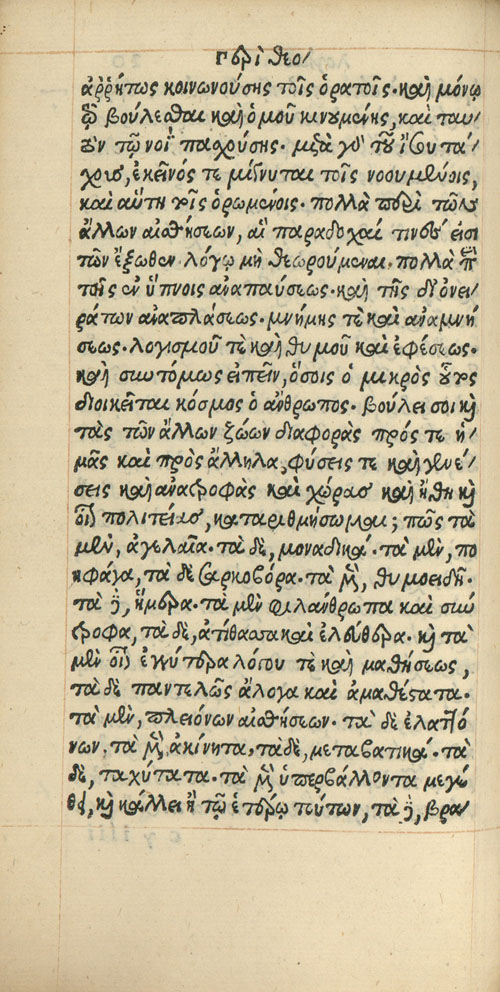 Περὶ θεο/
ἀῤῥήτως κοινωνούσης τοῖς ὁρατοῖς· καὶ μόνῳ
ᾧ βούλεσθαι καὶ ὁμοῦ κινουμένης, καὶ
τῷ νοῒ παχούσης·
ἐκεῖνός τε μίγνυται τοῖς νοουμένοις,
καὶ αὕτη τοῖς ὁρωμένοις· πολλὰ περὶ τῶν
ἄλλων αἰσθήσεων, αἳ παραδοχαί τινές εἰσι
τῶν ἔξωθεν λόγῳ μὴ θεωρούμεναι· πολλὰ περὶ
τῆς ἐν ὕπνοις ἀναπαύσεως· καὶ τῆς δι' ὀνει/
ράτων ἀναπλάσεως· μνήμης τὲ καὶ ἀναμνή
σεως· λογισμοῦ τὲ καὶ θυμοῦ καὶ ἐφέσεως·
καὶ συντόμως εἰπεῖν, ὅσοις ὁ μικρὸς οὗτος
διοικεῖται κόσμος ὁ ἄνθρωπος· βούλει σοι καὶ
τὰς τῶν ἄλλων ζώων διαφορὰς πρός τε ἡ/
μᾶς καὶ πρὸς ἄλληλα, φύσεις τε καὶ γενέ/
σεις καὶ ἀναστροφὰς καὶ χώρας καὶ ἤθη καὶ
οἷον πολιτείας, καταριθμήσωμαι; πῶς τὰ
μὲν, ἀγελαῖα· τὰ δὲ, μοναδικά· τὰ μὲν, πο
ηφάγα, τὰ δὲ σαρκοβόρα· τὰ μὲν, θυμοειδῆ·
τὰ δὲ, ἥμερα· τὰ μὲν φιλάνθρωπα καὶ σύν
τροφα, τὰ δὲ, ἀτίθασσα καὶ ἐλεύθερα· καὶ τὰ
μὲν οἷον ἐγγύτερα λόγου τὲ καὶ μαθήσεως,
τὰ δὲ παντελῶς ἄλογα καὶ ἀμαθέστατα·
τὰ μὲν, πλειόνων αἰσθήσεων· τὰ δὲ ἐλαττό
νων· τὰ μὲν ἀκίνητα, τὰ δὲ, μεταβατικά· τὰ
δὲ, ταχύτατα· τὰ μὲν ὑπερβάλλοντα μεγέ
θει, καὶ κάλλει ἢ τῷ ἑτέρῳ τούτων, τὰ δὲ, βρα/